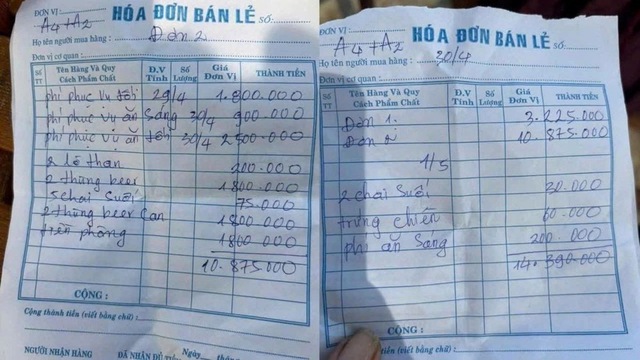 ĐƠN VỊ: A4+A2
HÓA ĐƠN BÁN LẺ SỐ:
Họ tên người mua hàng: Đơn 2
Đơn vị cơ quan:
SỐ TT Tên Hàng Và Quy Cách Phẩm Chất Đ.V Tính Số Lượng Giá Đơn Vị THÀNH TIỀN
phí phục vụ tối 29/4 1.800.000
phí phục vụ ăn sáng 30/4 900.000
phí phục vụ ăn tối 30/4 2500.000
2 lò than 200.000
2 thùng beer 1800.000
5 chai suối 75.000
2 thùng beer can 1800.000
tiền phòng 1800.000
10.875000
CỘNG:
Cộng thành tiền (viết bằng chữ):
Ngày
NGƯỜI NHẬN HÀNG ĐÃ NHẬN ĐỦ
ĐƠN VỊ: A4+A2
HÓA ĐƠN BÁN LẺ SỐ:
Họ tên người mua hàng: 30/4
Đơn vị cơ quan:
SỐ TT Tên Hàng Và Quy Cách Phẩm Chất Đ.V Tính Số Lượng Giá Đơn Vị THÀNH TIỀN
Đơn 1. 3.225.000
Đơn 2 10.875000
1/5
2 chai suối 30.000
trứng chiên 60.000
phí ăn sáng 200.000
14.390.000
CỘNG:
Cộng thành tiền (viết bằng chữ):